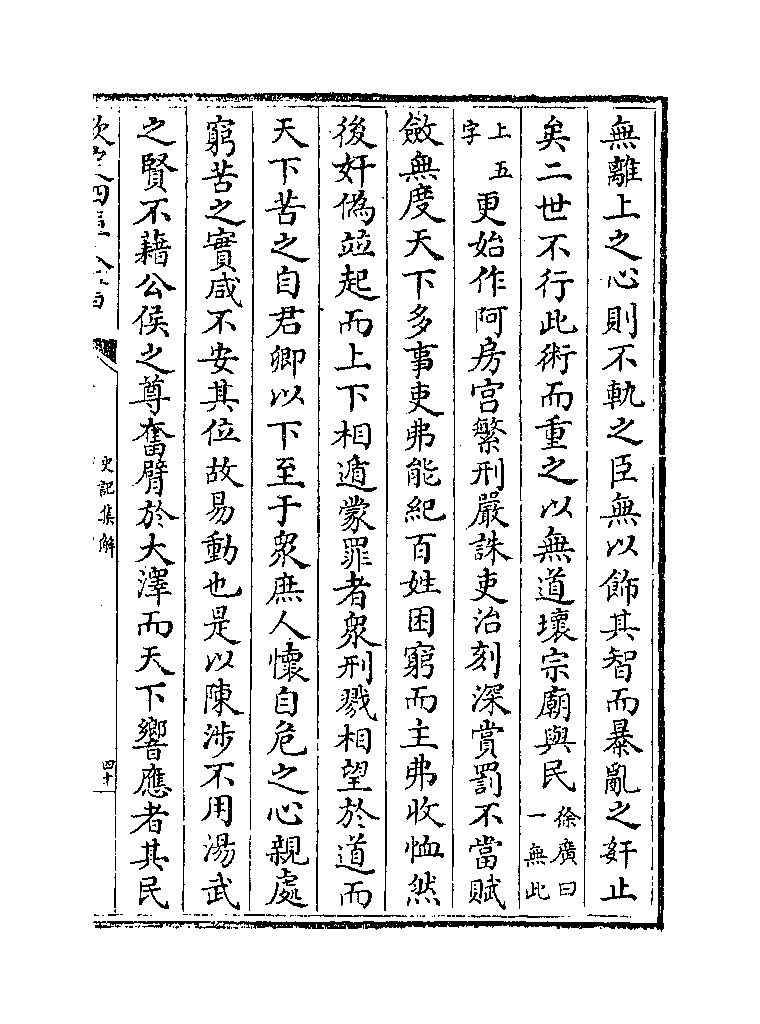 無離上之心則不軌之臣無以飾其智而暴亂之奸止
矣二世不行此術而重之以無道壞宗廟與民徐廣曰一無此
上五字更始作阿房宫繁刑嚴誅吏治刻深賞罰不當賦
斂無度天下多事吏弗能紀百姓困窮而主弗收恤然
後奸偽竝起而上下相遁蒙罪者衆刑戮相望於道而
天下苦之自君卿以下至于衆庶人懷自危之心親處
窮苦之實咸不安其位故易動也是以陳涉不用湯武
之賢不藉公侯之尊奮臂於大澤而天下響應者其民
史記集解
四十